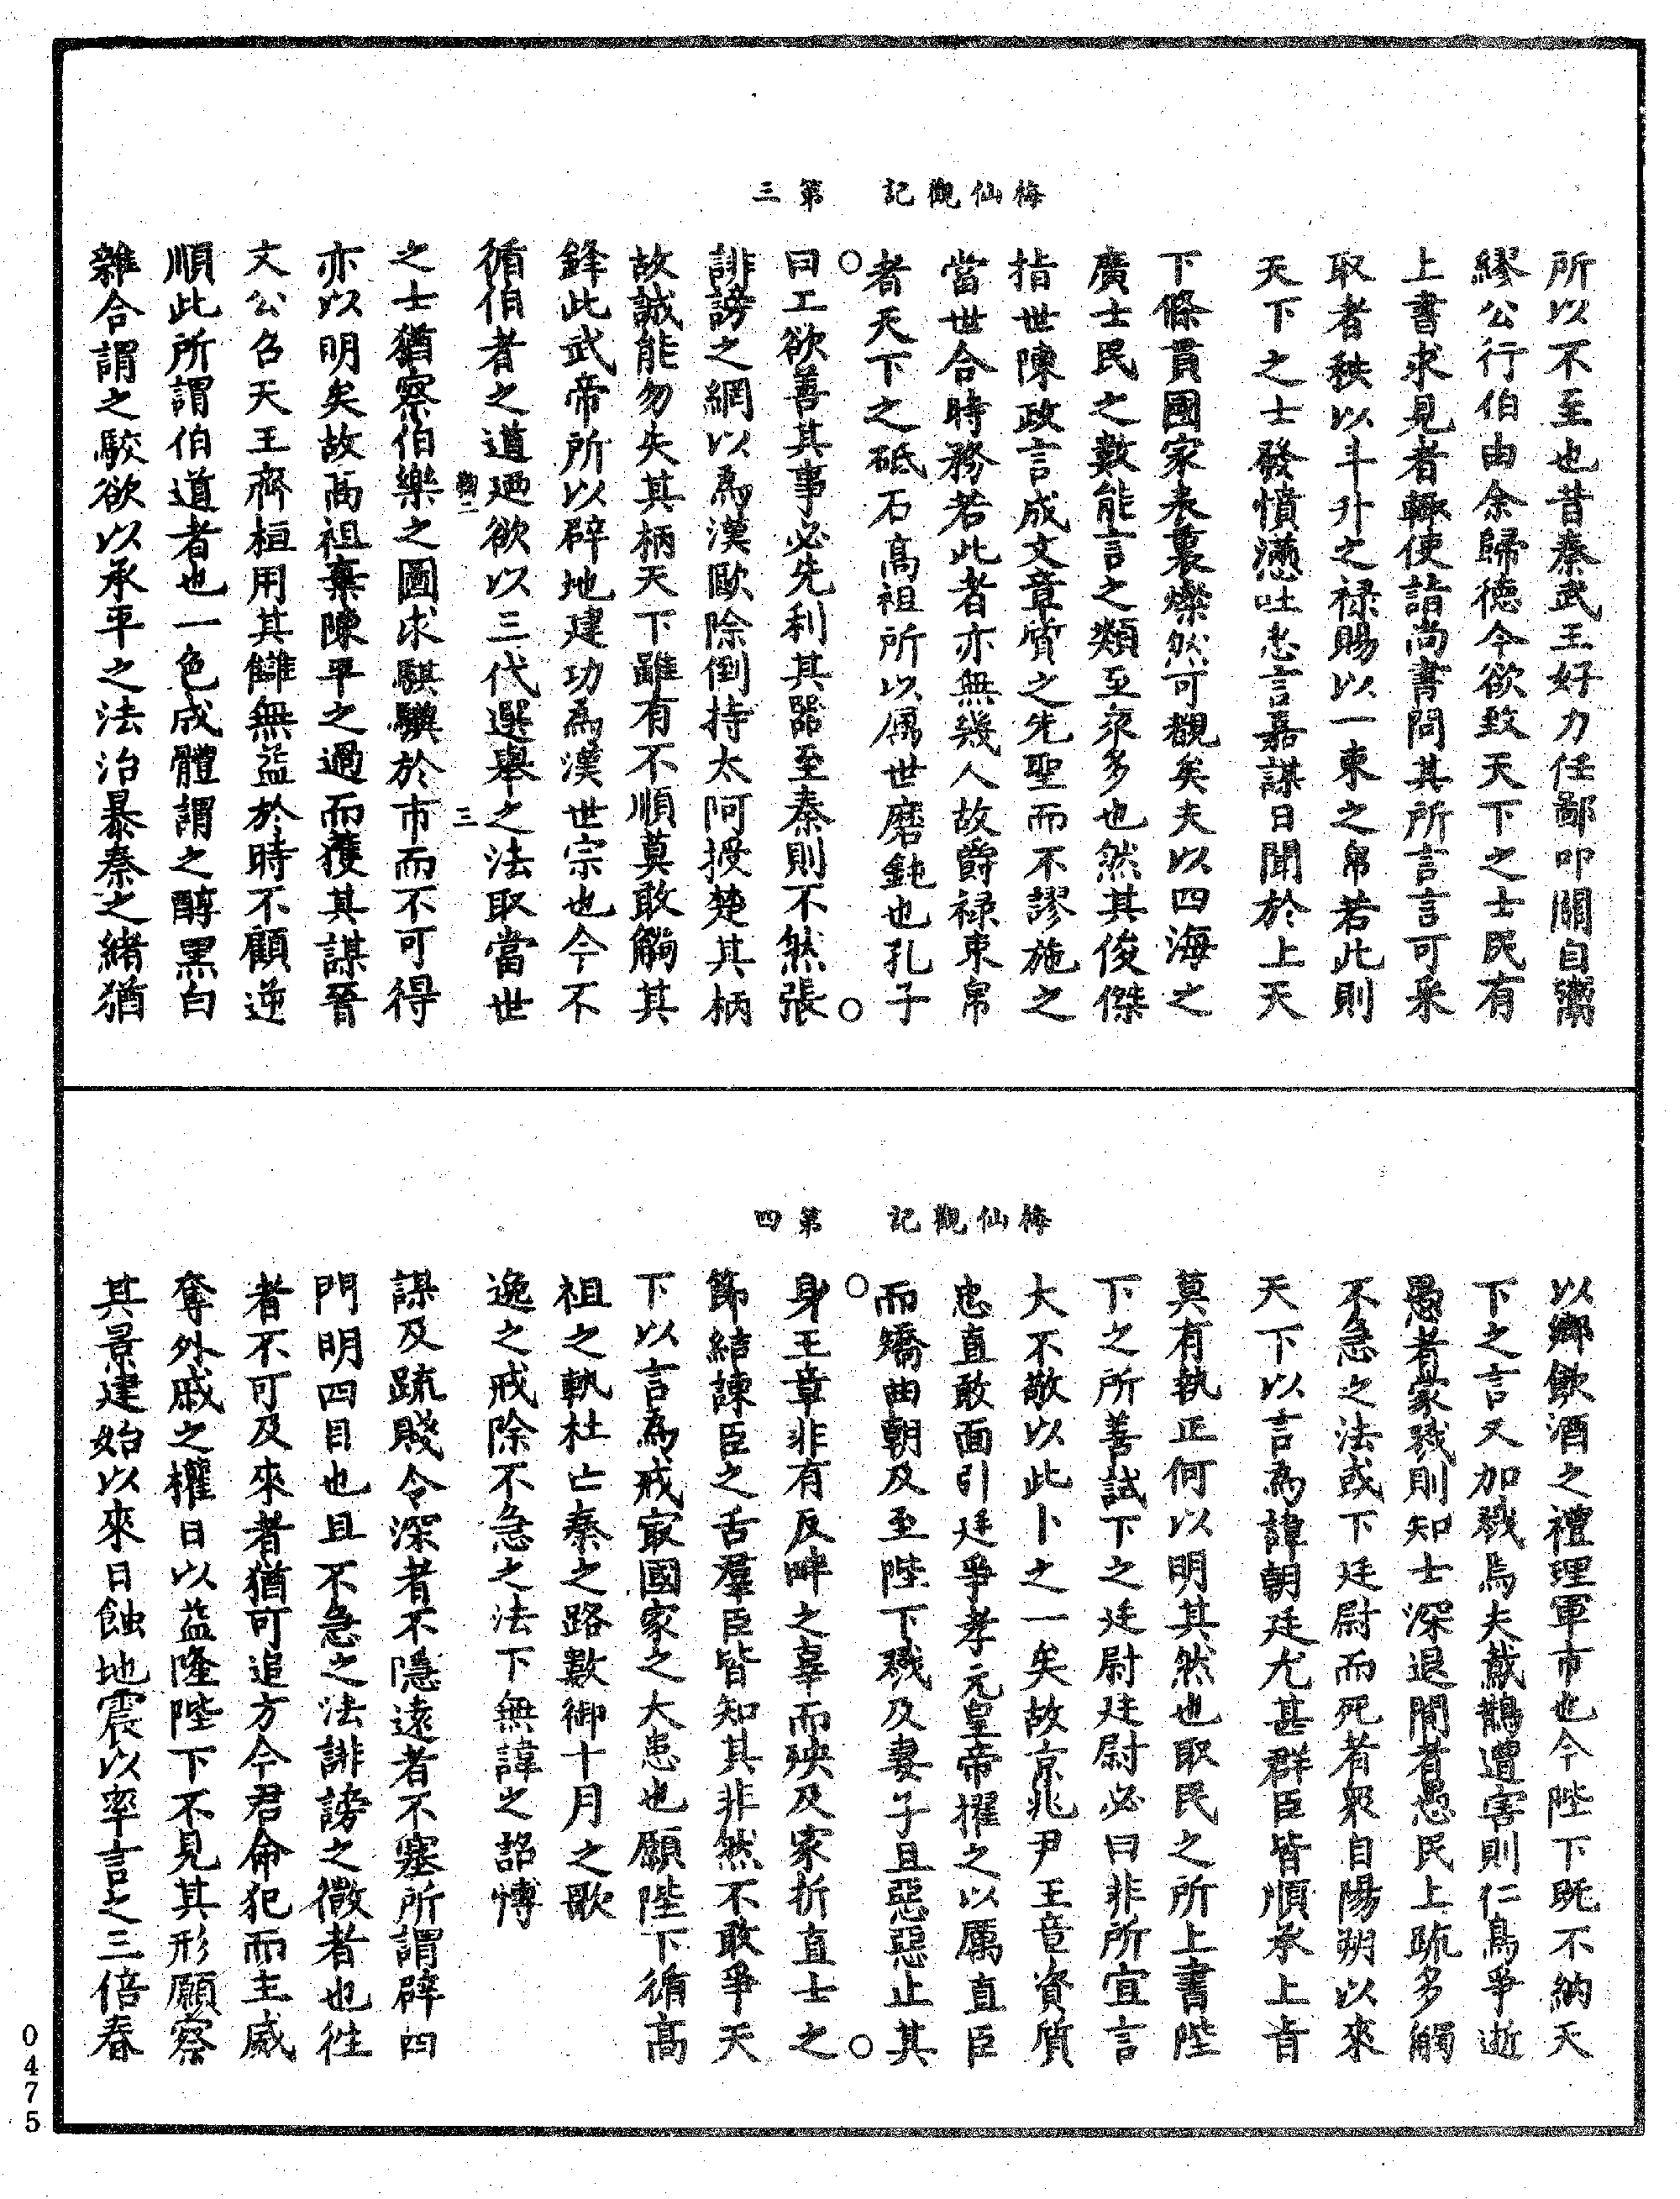 梅仙觀記　第三
所以不至也昔秦武王好力任鄙叩關自鬻
繆公行伯由余歸德今欲致天下之士民有
上書求見者輙使詣尚書問其所言言可采
取者秩以斗升之禄賜以一束之帛若此則
天下之士發憤懣吐忠言嘉謀日聞於上天
下條貫國家表裏燦然可觀矣夫以四海之
廣士民之數能言之類至衆多也然其俊傑
指世陳政言成文章質之先聖而不謬施之
當世合時務若此者亦無幾人故爵禄束帛
者天下之砥石高祖所以厲世磨鈍也孔子
曰工欲善其事必先利其器至秦則不然張
誹謗之網以為漢歐除倒持太阿授楚其柄
故誠能勿失其柄天下雖有不順莫敢觸其
鋒此武帝所以辟地建功為漢世宗也今不
循伯者之道廼欲以三代選舉之法取當世
三
之士猶察伯樂之圖求騏驥於市而不可得
亦以明矣故高祖棄陳平之過而獲其謀晉
文公召天王齊桓用其讎無益於時不顧逆
順此所謂伯道者也一色成體謂之醇黑白
雜合謂之駮欲以承平之法治暴秦之緒猶
梅仙觀記　第四
以鄉飲酒之禮理軍市也今陛下既不納天
下之言又加戮焉夫䳒鵲遭害則仁鳥爭逝
愚者蒙戮則知士深退間者愚民上疏多觸
不急之法或下廷尉而死者衆自陽朔以來
天下以言為諱朝廷尤甚群臣皆順承上旨
莫有執正何以明其然也取民之所上書陛
下之所善試下之廷尉廷尉必曰非所宜言
大不敬以此卜之一矣故京兆尹王章資質
忠直敢面引廷爭孝元皇帝擢之以厲直臣
而矯曲朝及至陛下戮及妻子且惡惡止其
身王章非有反畔之辜而殃及家折直士之
節結諫臣之舌羣臣皆知其非然不敢爭天
下以言為戒㝡國家之大患也願陛下循高
祖之軌杜亡秦之路數御十月之歌
逸之戒除不急之法下無諱之詔慱
謀及疏賤令深者不隱遠者不塞所謂辟四
門明四目也且不急之法誹謗之微者也徃
者不可及來者猶可追方今君命犯而主威
奪外戚之權日以益隆陛下不見其形願察
其景建始以來日蝕地震以率言之三倍春
0475